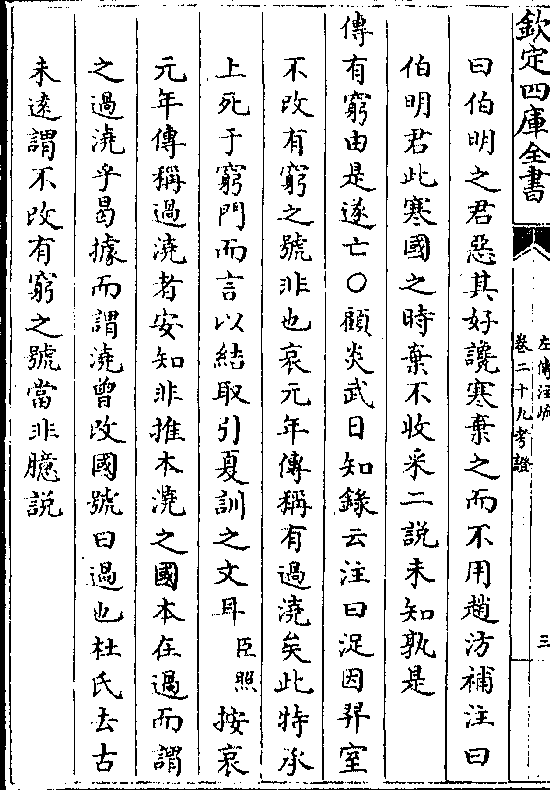 欽定四庫全書
左傳注疏
卷二十九考證
三
曰伯明之君惡其好讒寒棄之而不用趙汸補注曰
伯明君此寒國之時棄不收采二說未知孰是
傳有窮由是遂亡○顧炎武日知錄云注曰浞因羿室
不改有窮之號非也哀元年傳稱有過澆矣此特承
上死于窮門而言以結取引夏訓之文耳臣照按哀
元年傳稱過澆者安知非推本澆之國本在過而謂
之過澆乎曷據而謂澆曾改國號曰過也杜氏去古
未遠謂不改有窮之號當非臆説